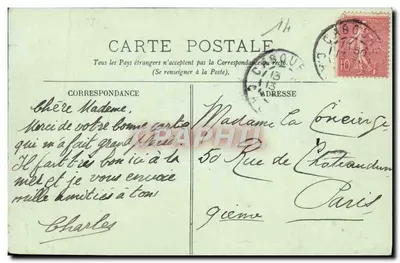 14
CARTE POSTALE
Tous les Pays étrangers n'acceptent pas la Correspondance au recto
(Se renseigner à la Poste).
CORRESPONDANCE
ADRESSE
Chère Madame,
Merci de votre bonne carte
qui m'a fait grand plaisir
Il fait très bon ici à la
mer et je vous envoie
mille amitiés à tous
Charles
Madame La Concierge
50 Rue de Châteaudun
Paris
9ième
CABOURG
CABOURG
13
10